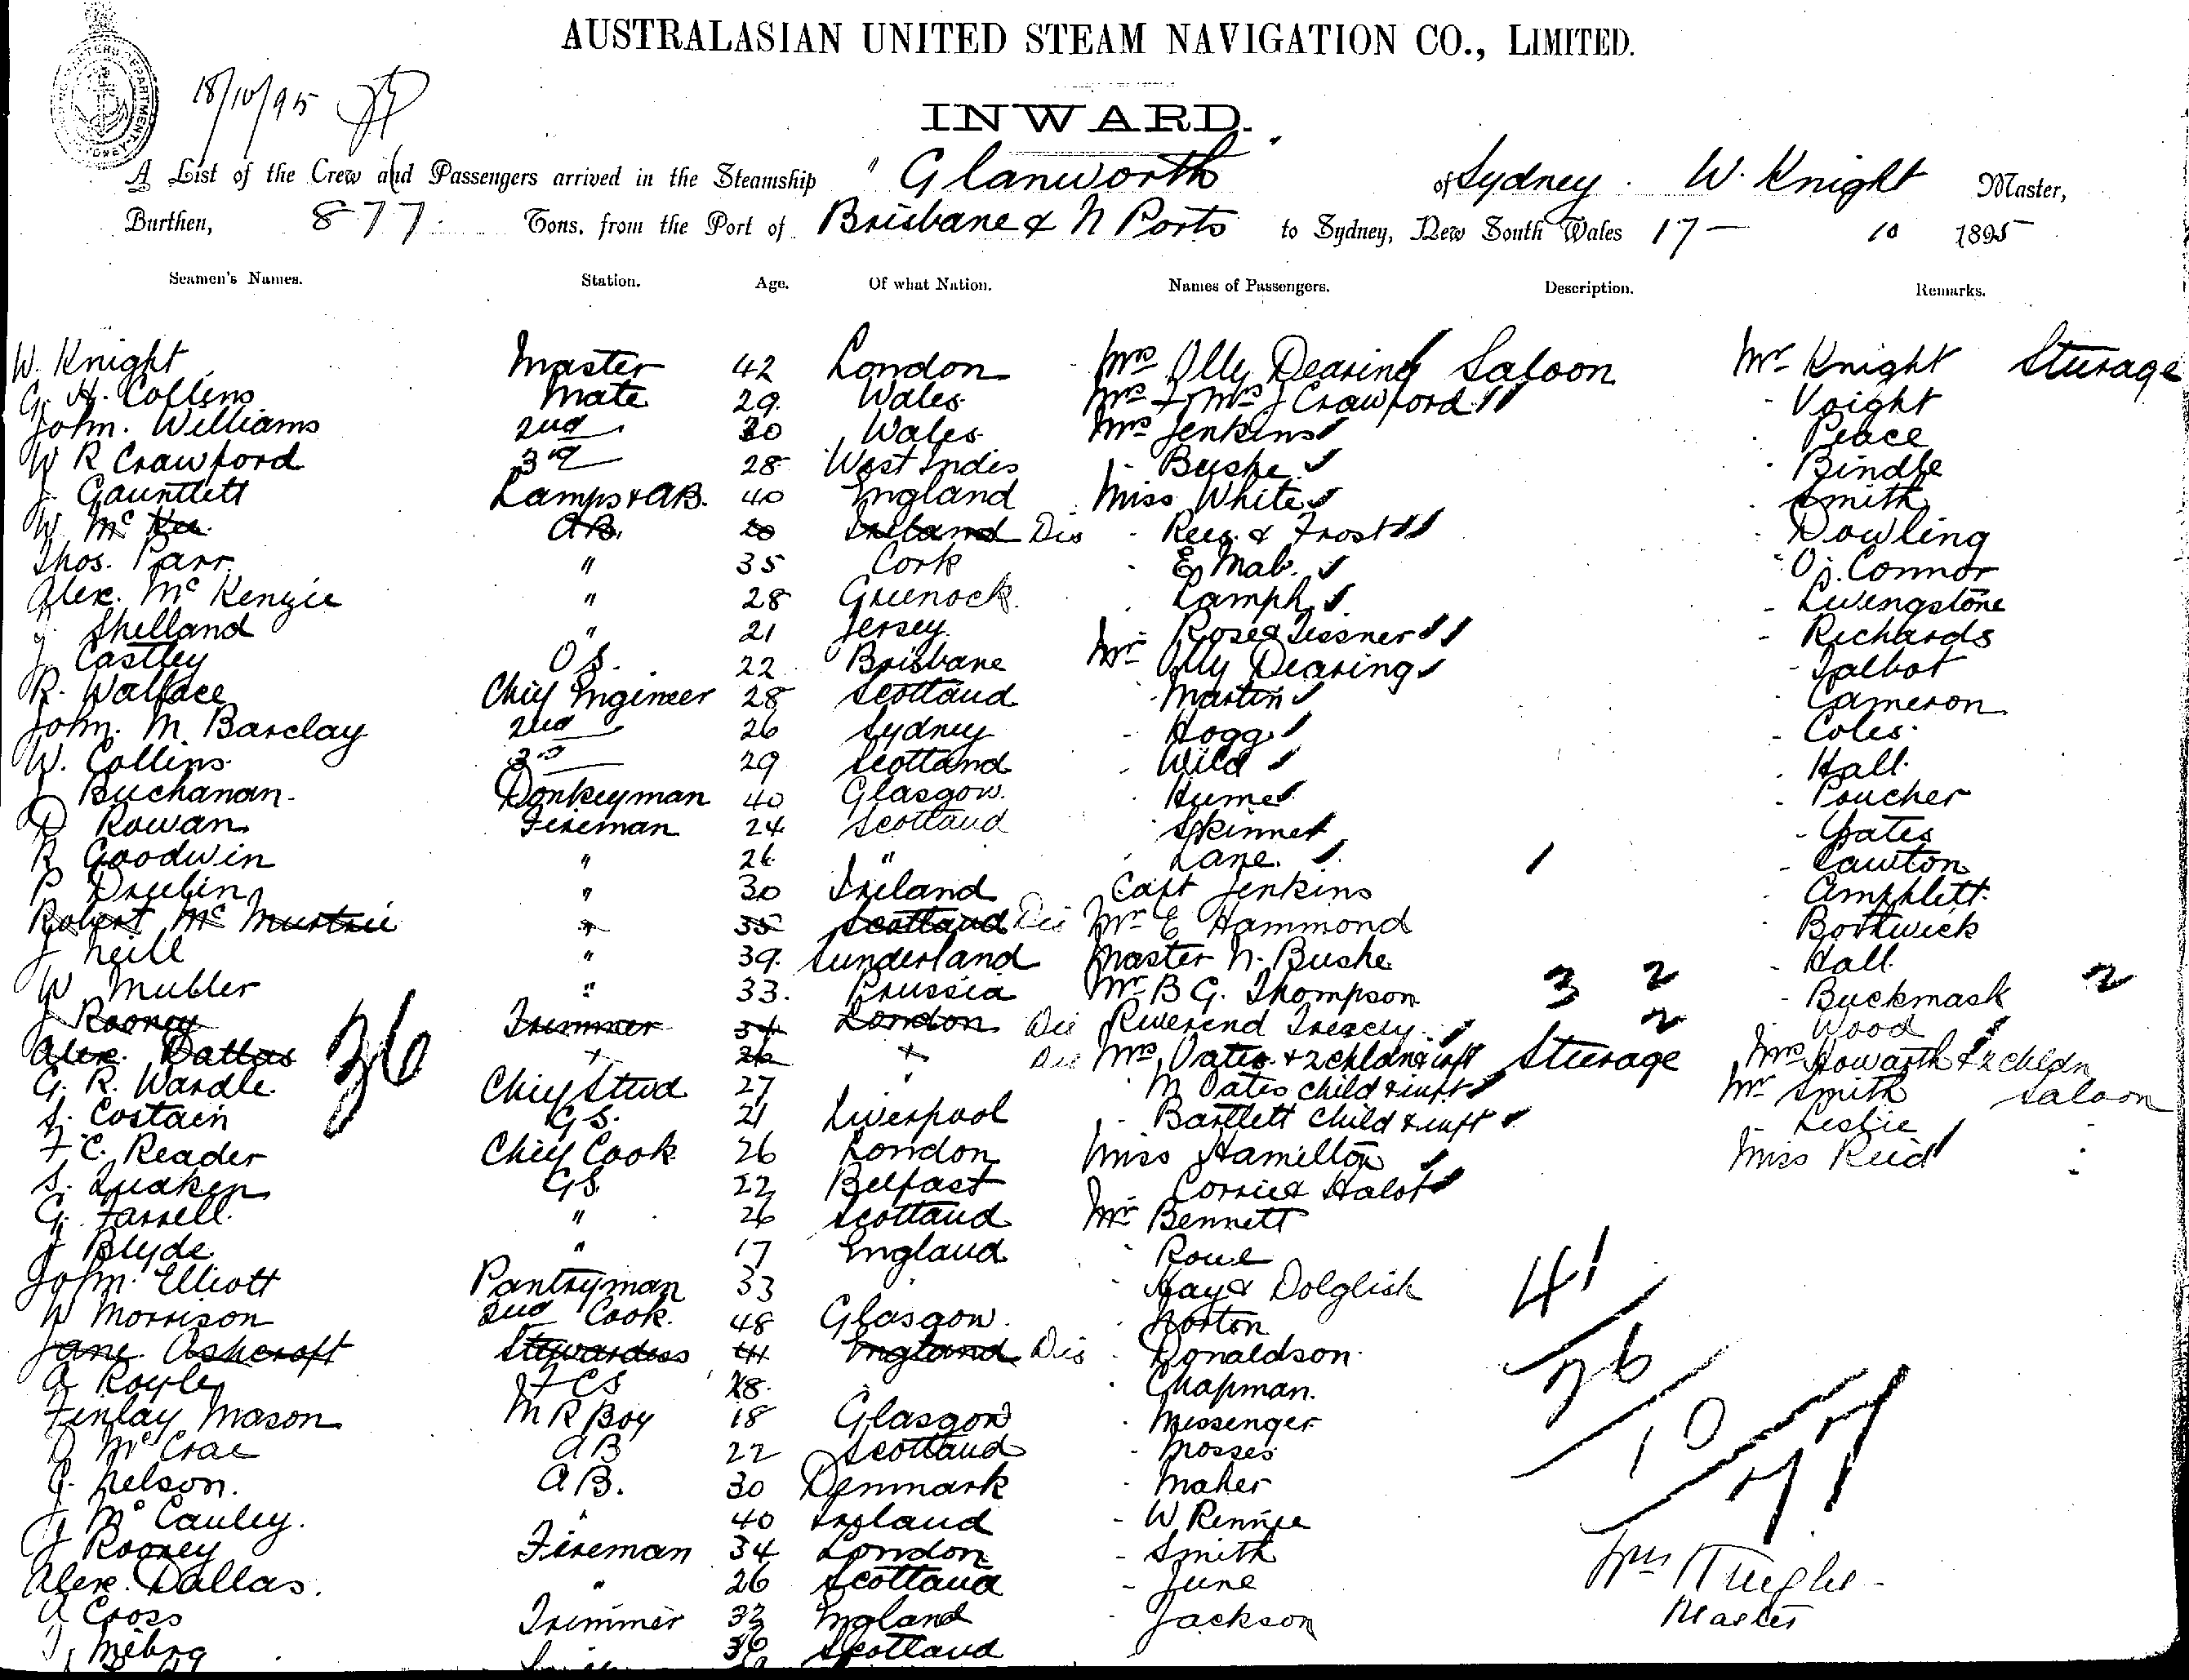 AUSTRALASIAN UNITED STEAM NAVIGATION CO., LIMITED.
18/10/95
INWARD.
A List of the Crew and Passengers arrived in the Steamship "Glanworth" of Sydney. W. Knight Master,
Burthen, 877. Tons, from the Port of Brisbane & N Ports to Sydney, New South Wales 17 — 10 1895
Seamen's Names. Station. Age. Of what Nation. Names of Passengers. Description. Remarks.
W. Knight Master 42 London Mrs Olly Dearing Saloon Mr Knight Sturage
G. H. Collins Mate 29. Wales Mrs & Mrs J Crawford - Voight
John. Williams 2nd 30 Wales Mrs Jenkins Peace
W R Crawford 3rd 28 West Indis - Bushe - Bindle
J. Gauntlett Lamps & AB. 40 England Miss White Smith
W. Mc Kee AB. 20 Ireland Dis - Rees & Frost Dowling
Thos. Parr " 35 Cork - E Mab. O. Connor
Alex. Mc Kenzie " 28 Greenock Lamph - Livengstone
J. Shelland " 21 Jersey - Rose & Tissner - Richards
J. Castley O S. 22 Brisbane Mr Olly Dearing - Talbot
R. Wallace Chief Engineer 28 Scotland - Martin Cameron
John. M. Barclay 2nd 26 Sydney - Hogg - Coles
W. Collins 3rd 29 Scotland - Wild - Hall
J Buchanan Donkeyman 40 Glasgow - Hume - Poucher
D Rowan Fireman 24 Scotland - Skinner - Yates
R Goodwin " 26 " Lane - Cawton
P Dreelin " 30 Ireland Capt Jenkins - Amphlett
Robert Mc Murtrie " 35 Scotland Dis Mr E Hammond Bothwick
J Neill " 39 Sunderland Master N. Bushe - Hall
W Muller " 33. Prussia Mr B G. Thompson 3 2 - Buckmask 2
J Rooney Trimmer 34 London Dis Reverend Treacy 2 Wood
Alex. Dallas " 26 " Dis Mrs Oates & 2 chldn & inft Sturage Mrs Howarth & 2 chldn
36
G. R. Wardle Chief Stwd 27 M Oates child & inft Mr Smith Saloon
S. Costain G S. 21 Liverpool - Bartlett Child & inft Leslie
F C. Reader Chief Cook 26 London Miss Hamilton Miss Reid
S. Quaken G S. 22 Belfast Corrie & Halot
G. Farrell " 26 Scotland Mr Bennett
J Blyde " 17 England - Rowe
John. Elliott Pantryman 33 - Hay & Dolglish 41
W Morrison 2nd Cook 48 Glasgow - Norton
Jane Ashcroft Stewardess 41 England Dis - Donaldson 36
A Royle F C S 28 - Chapman.
Finlay Mason M R Boy 18 Glasgow - Messenger 10
D McCrae AB 22 Scotland - Mosses 77
C. Nelson. AB. 30 Denmark - Maher
J McCauley. " 40 Ireland - W Rennie
J Rooney Fireman 34 London - Smith
Alex. Dallas. " 26 Scotland - June
A Cross Trimmer 32 England - Jackson
36 Scotland
Wm Knight
Master